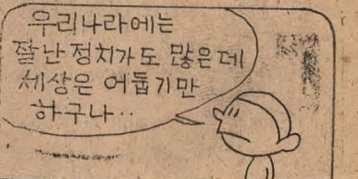 우리나라에는
잘난정치가도 많은데
세상은 어둡기만
하구나‥